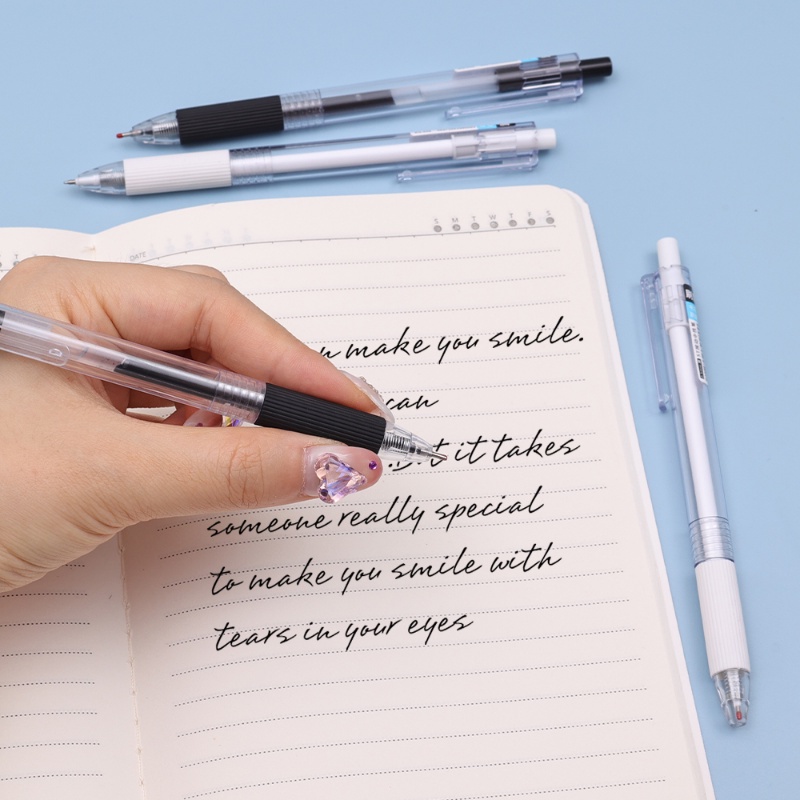 DATE
S M T W T F S
make you smile.
can
But it takes
someone really special
to make you smile with
tears in your eyes